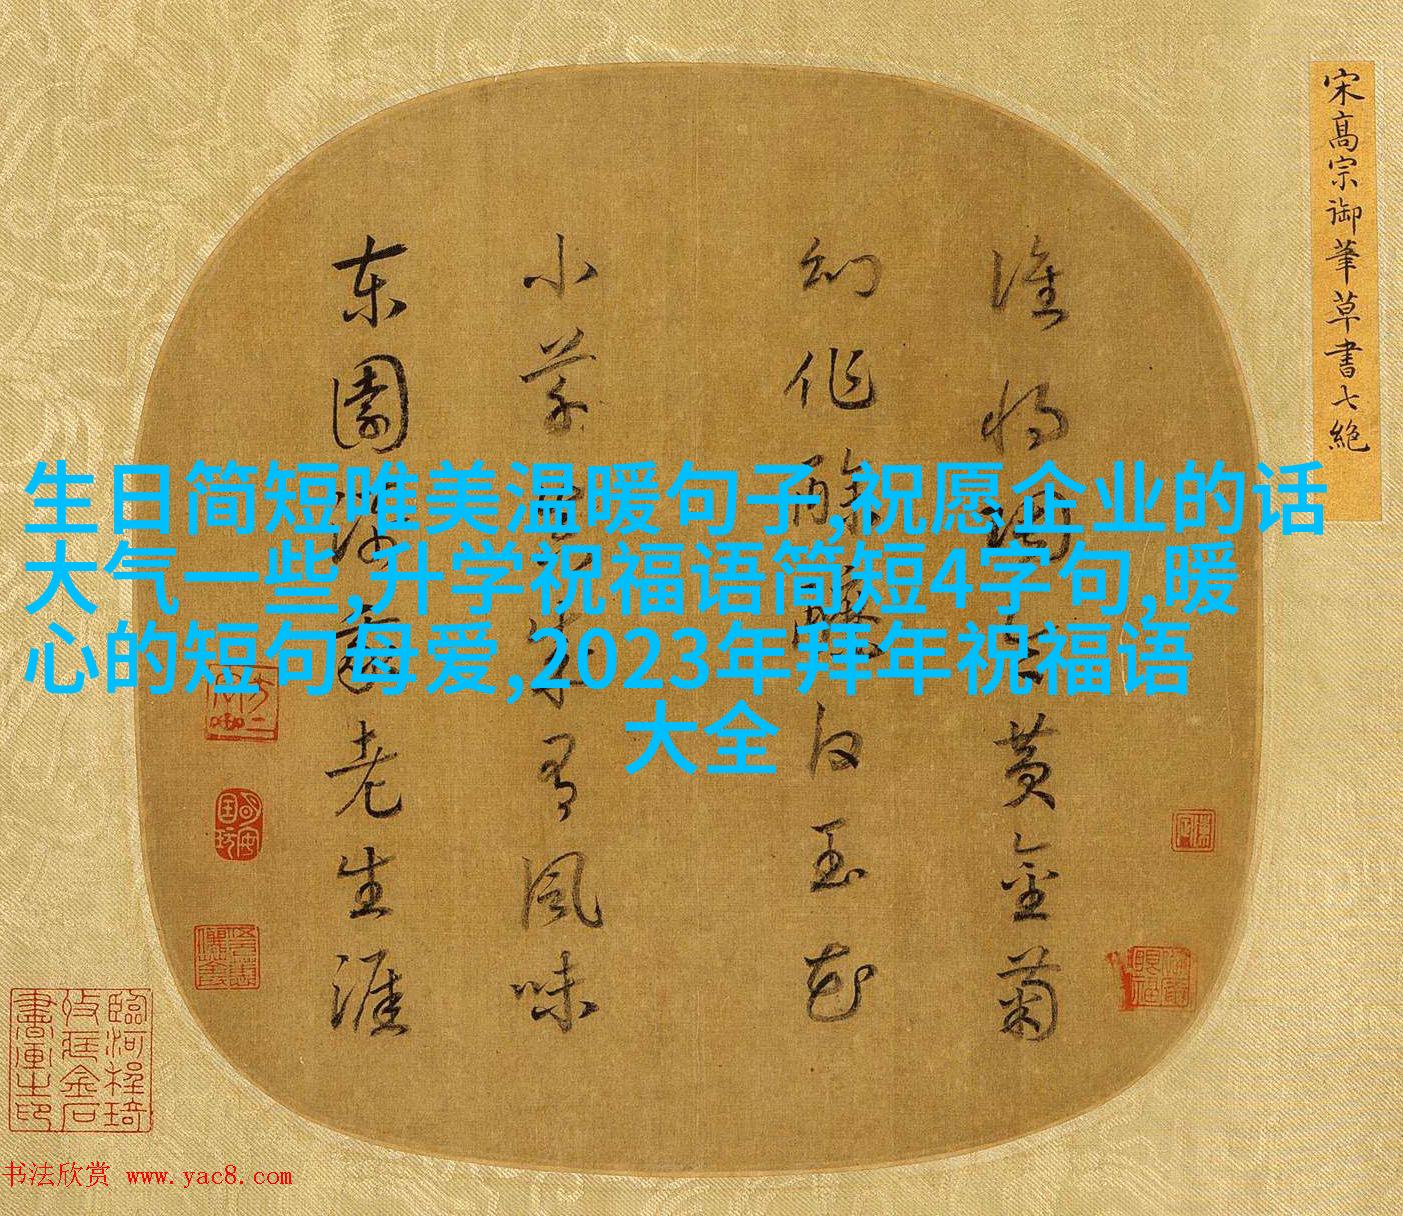 宋高宗御筆草書七絕
誰將陶令黃金菊
幻作酴醾白玉花
小草真成有風味
东園添我老生涯
生日简短唯美温暖句子,祝愿企业的话
大气一些,升学祝福语简短4字句,暖
心的短句母爱,2023年拜年祝福语
大全
书法欣赏 www.yac8.com